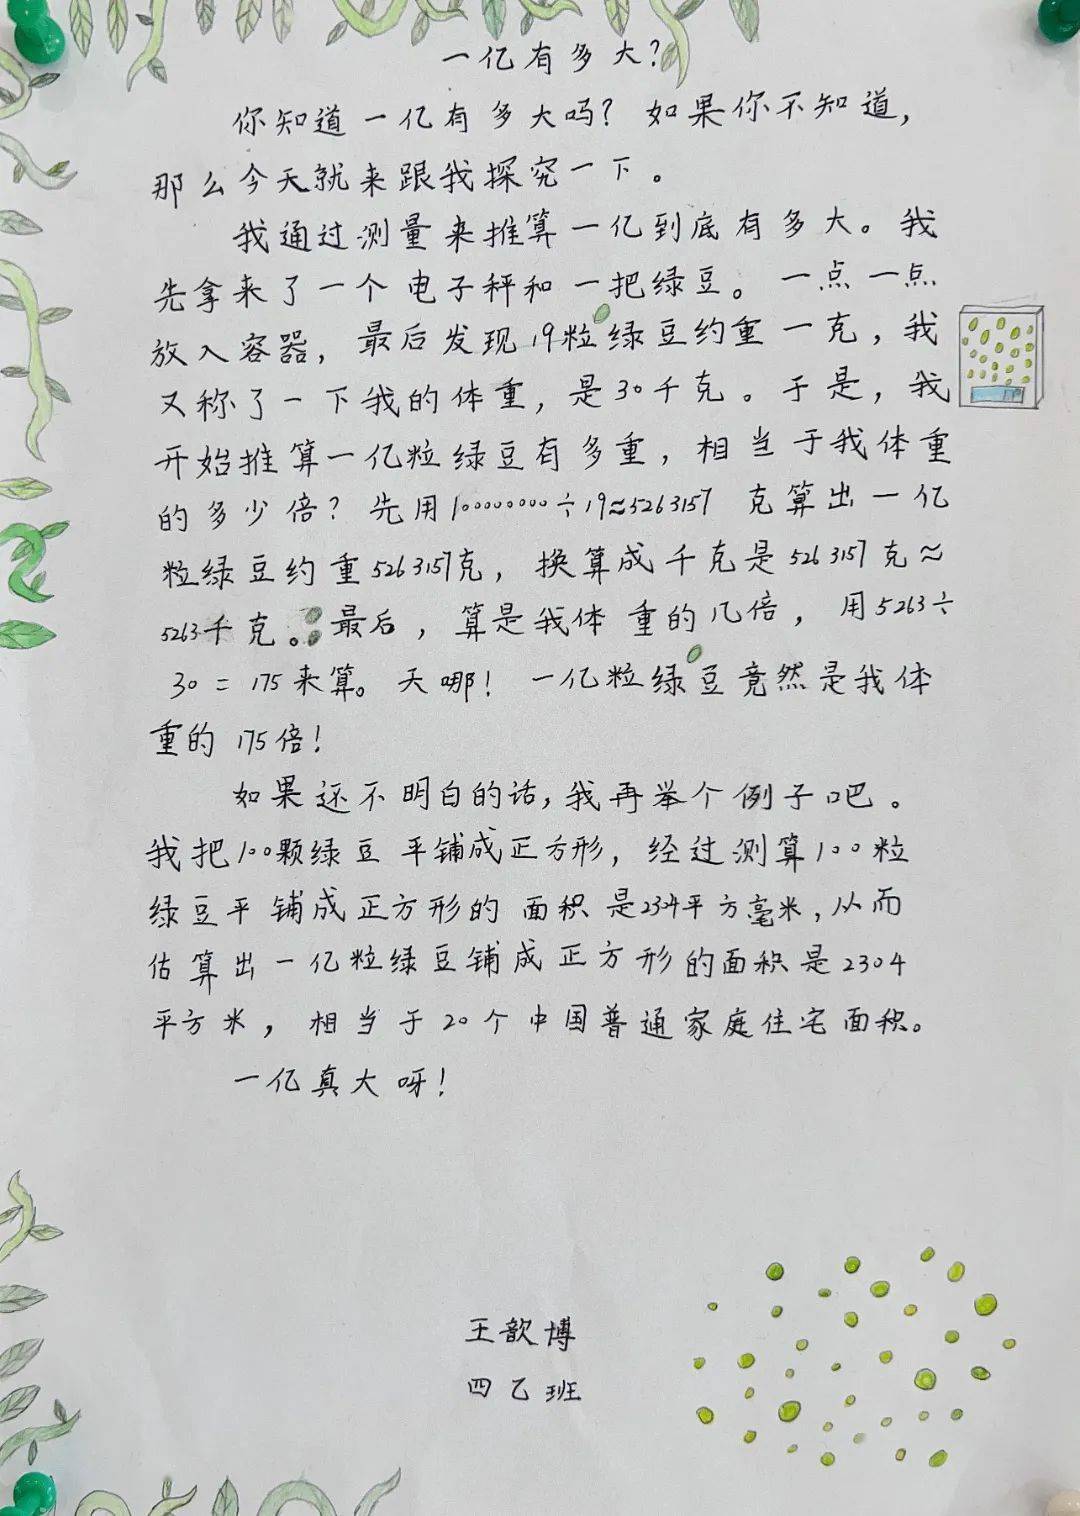 一亿有多大？
你知道一亿有多大吗？如果你不知道，
那么今天就来跟我探究一下。
我通过测量来推算一亿到底有多大。我
先拿来了一个电子秤和一把绿豆。一点一点
放入容器，最后发现19粒绿豆约重一克，我
又称了一下我的体重，是30千克。于是，我
开始推算一亿粒绿豆有多重，相当于我体重
的多少倍？先用100000000÷19≈5263157克算出一亿
粒绿豆约重5263157克，换算成千克是5263157克≈
5263千克。最后，算是我体重的几倍，用5263÷
30=175来算。天哪！一亿粒绿豆竟然是我体
重的175倍！
如果还不明白的话，我再举个例子吧。
我把100颗绿豆平铺成正方形，经过测算100粒
绿豆平铺成正方形的面积是234平方毫米，从而
估算出一亿粒绿豆铺成正方形的面积是2304
平方米，相当于20个中国普通家庭住宅面积。
一亿真大呀！
王歆博
四乙班